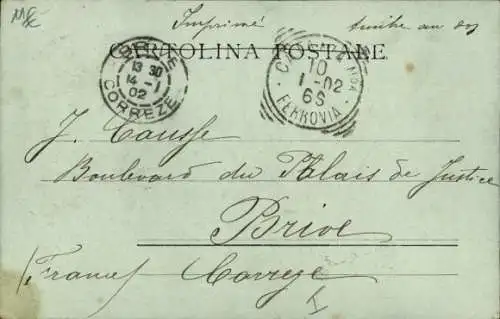 Imprimé
CARTOLINA POSTALE
BRIVE
13 30
14 - 1
02
CORREZE
10
1 - 02
6S
FERROVIA
J. Causse
Boulevard du Palais de Justice
Brive
(France) Corrèze